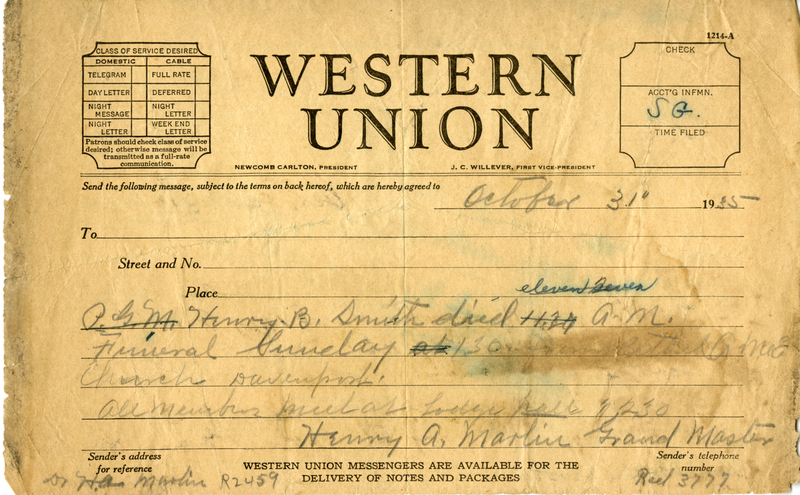 1214-A
CLASS OF SERVICE DESIRED
DOMESTIC CABLE
TELEGRAM FULL RATE
DAY LETTER DEFERRED
NIGHT MESSAGE NIGHT LETTER
NIGHT LETTER WEEK END LETTER
Patrons should check class of service
desired; otherwise message will be
transmitted as a full-rate
communication.
WESTERN
UNION
NEWCOMB CARLTON, PRESIDENT J. C. WILLEVER, FIRST VICE-PRESIDENT
CHECK
ACCT'G INFMN.
SG.
TIME FILED
Send the following message, subject to the terms on back hereof, which are hereby agreed to
October 31" 1935
To
Street and No.
Place
eleven seven
P.G.M. Henry B. Smith died 11.27 A.M.
Funeral Sunday at 1.30
Church Davenport.
All Members meet at Lodge
Henry A. Marlin Grand Master
Sender's address
for reference
Dr Marlin R2459
WESTERN UNION MESSENGERS ARE AVAILABLE FOR THE
DELIVERY OF NOTES AND PACKAGES
Sender's telephone
number
3777